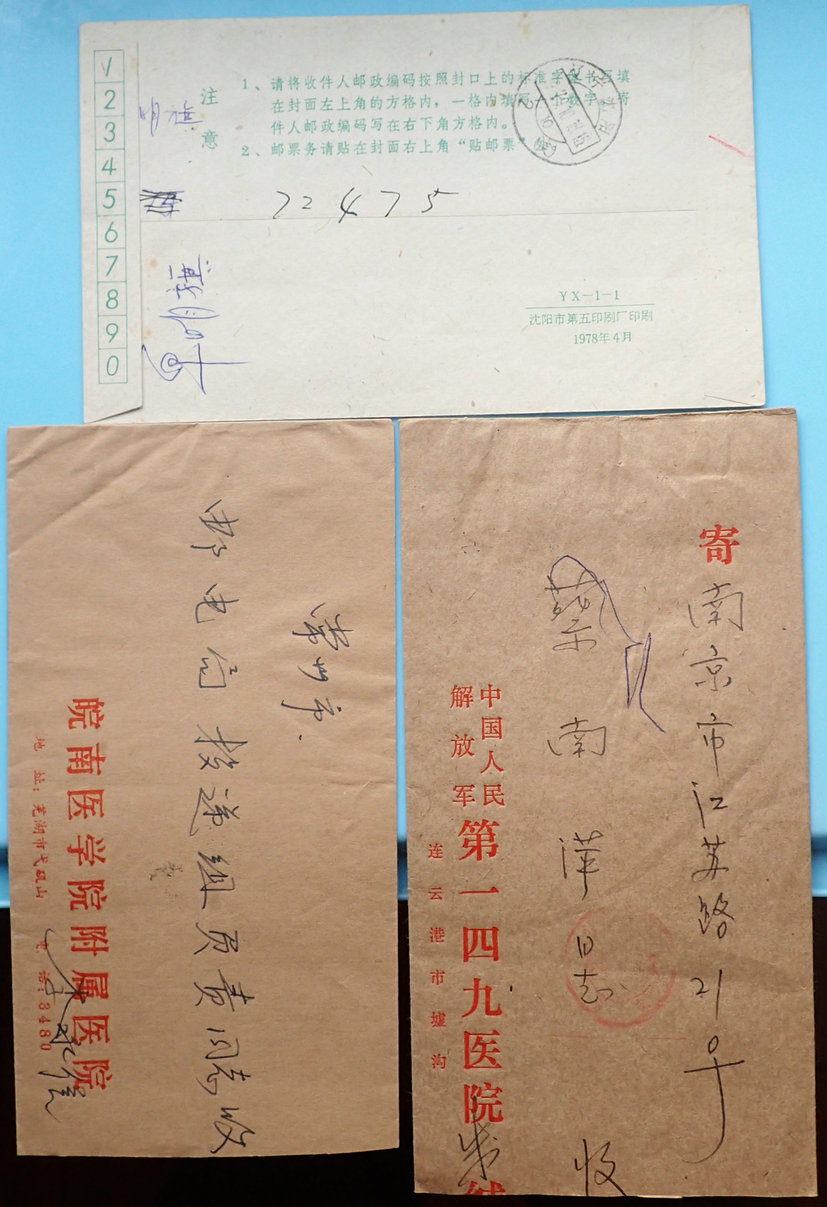 1
2
3
4
5
6
7
8
9
0
注意
1、请将收件人邮政编码按照封口上的标准字体书写填
在封面左上角的方格内，一格内填写一个数字，寄
件人邮政编码写在右下角方格内。
2、邮票务请贴在封面右上角“贴邮票”处
72475
YX-1-1
沈阳市第五印刷厂印刷
1978年4月
常州市.
邮电局投递组负责同志收
皖南医学院附属医院
地址：芜湖市弋矶山 电话：3480
寄
南京市江苏路21号
蔡南萍同志 收
中国人民
解放军
第一四九医院
连云港市墟沟